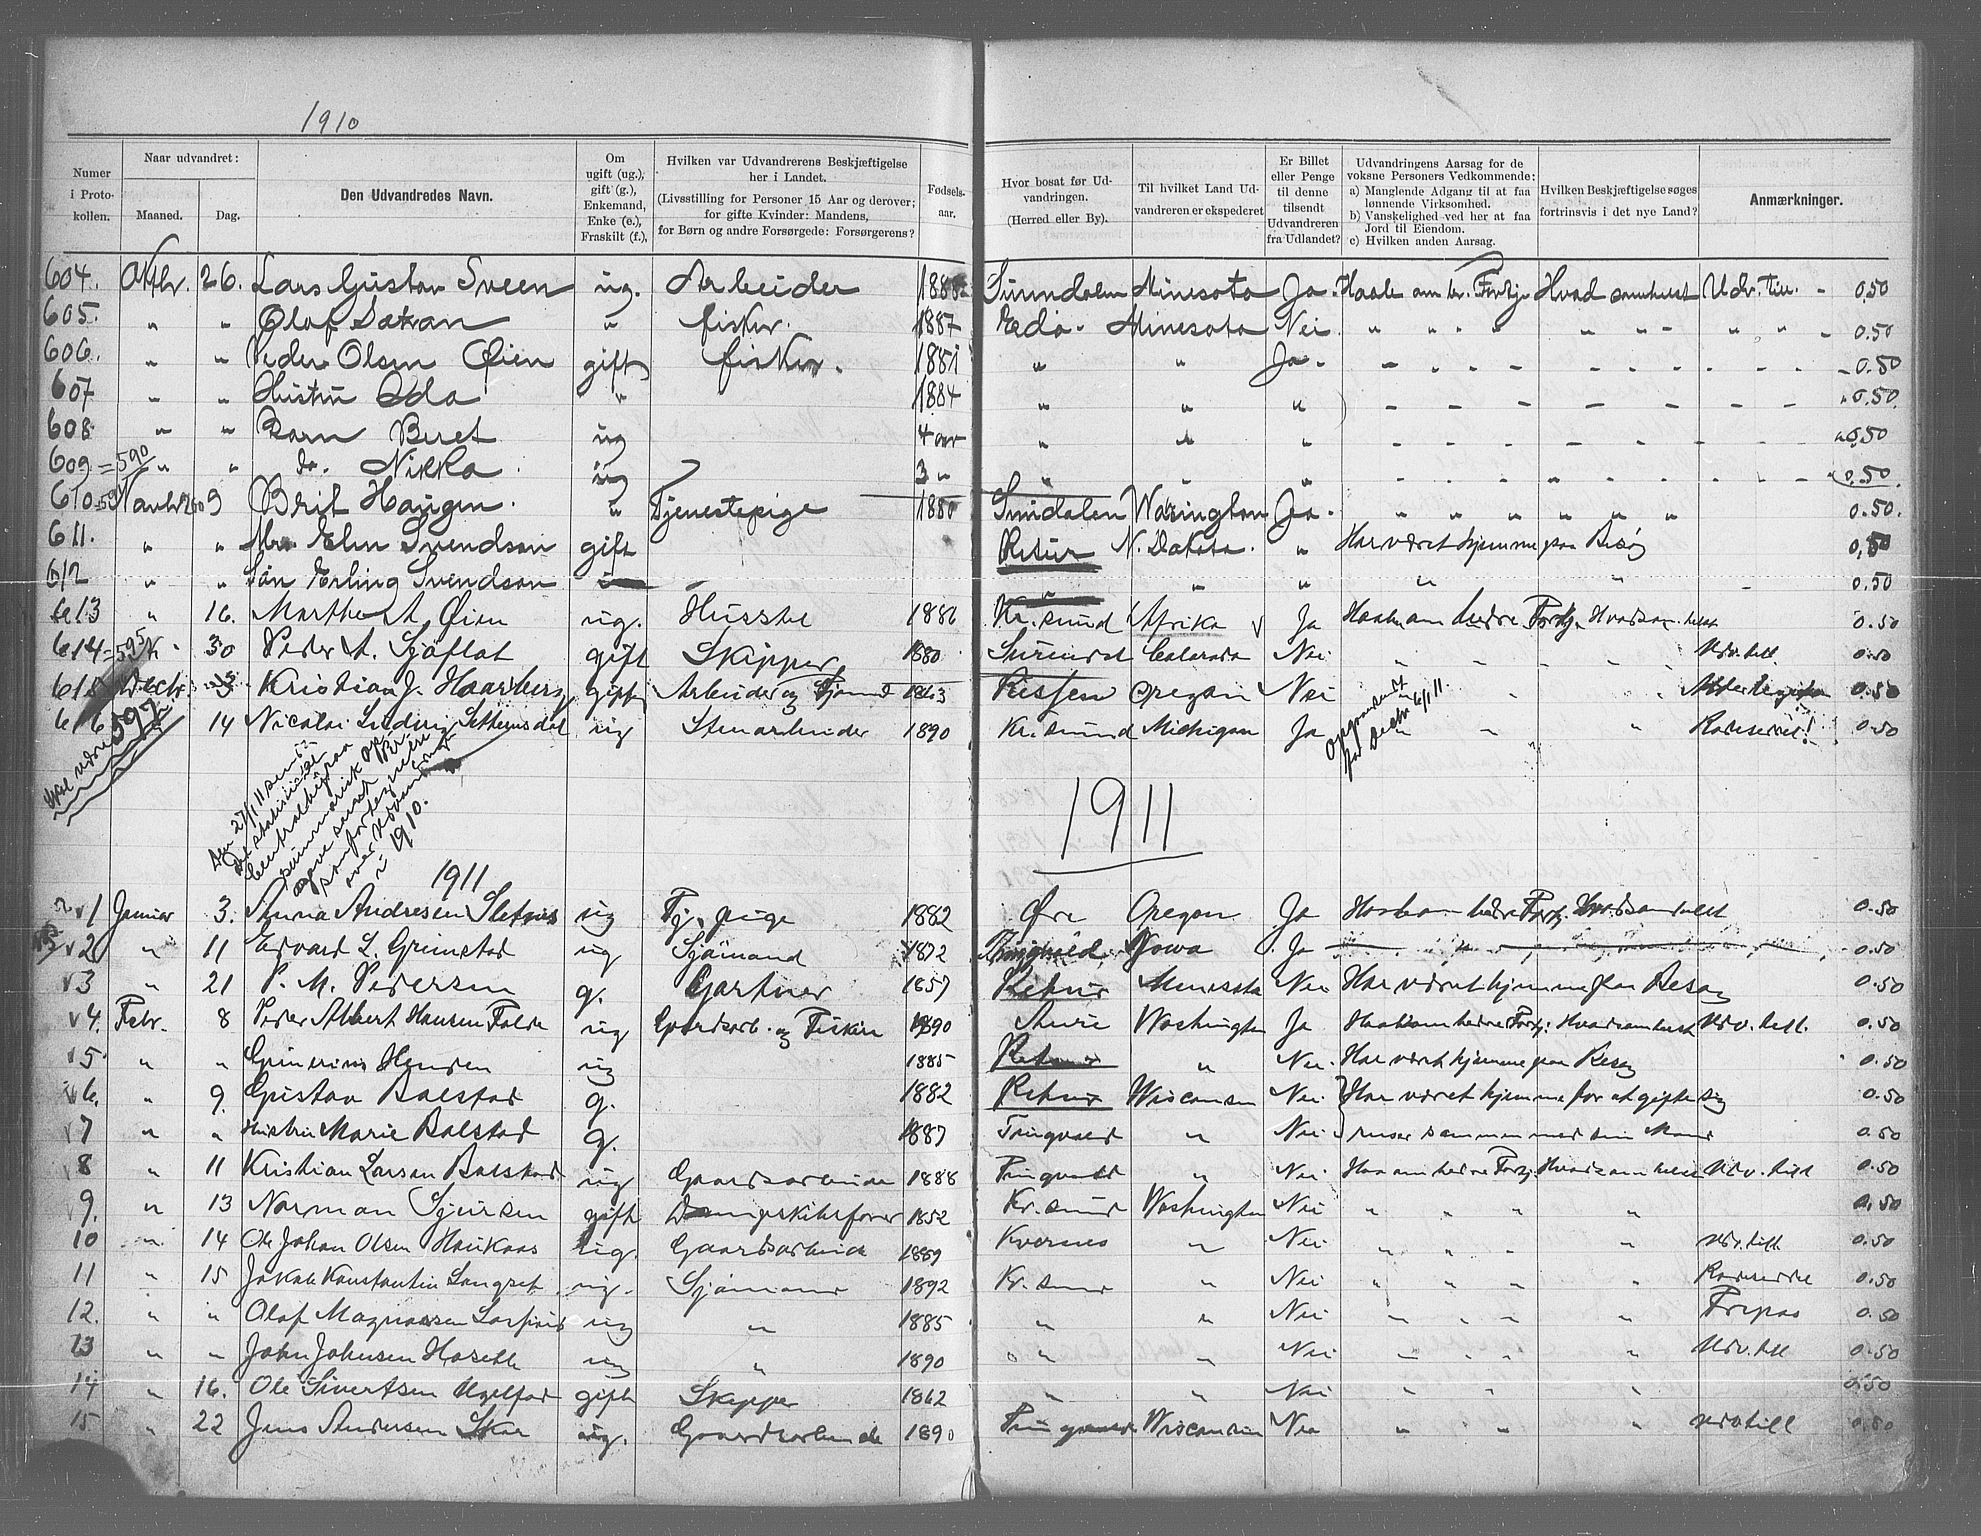 1910
Numer i Proto-kollen.
Naar udvandret:
Maaned.
Dag.
Den Udvandredes Navn.
Om ugift (ug.), gift (g.), Enkemand, Enke (e.), Fraskilt (f.),
Hvilken var Udvandrerens Beskjæftigelse her i Landet. (Livsstilling for Personer 15 Aar og derover; for gifte Kvinder: Mandens, for Børn og andre Forsørgede: Forsørgerens?
Fødsels-aar.
Hvor bosat før Ud-vandringen. (Herred eller By).
Til hvilket Land Ud-vandreren er ekspederet
Er Billet eller Penge til denne tilsendt Udvandreren fra Udlandet?
Udvandringens Aarsag for de voksne Personers Vedkommende: a) Manglende Adgang til at faa lønnende Virksomhed. b) Vanskelighed ved her at faa Jord til Eiendom. c) Hvilken anden Aarsag.
Hvilken Beskjæftigelse søges fortrinsvis i det nye Land?
Anmærkninger.
604. Oktbr. 26. Lars Gustav Sveen ug. Arbeider Sunndalen Minesota Ja. Haab om br. Fortj. Hvad somhelst Udv. till. " 0.50
605. " " Olof " fisker. 1887 Edø. Minesota Nei " " " " " " " " " 0.50
606. " " Peder Olsen Øien gift fisker. 1881 " " Ja. 0.50
607 " " Hustru Oda " 1884 " " " 0.50.
608. " " Barn Beret ug 4 aar " " " 0.50
609 = 590 " " do. Nikka ug 3 " " " " 0.50
610 9 Brit Haugen. " Tjenestepige 1880 Sundalen Wasington Ja. " " " " " " 0.50.
611. " " Mrs. Elen Svendsen gift Retur N. Dakota. " Har været hjemme paa Besøg 0,50
612 " " Søn Erling Svendsen " " " " 0.50
613 " 16. Marthe A. Øien ug. Husstel 1886 Kr.sund Afrika Ja Haab om bedre Fortj. Hvadsomhelst 0.50
614 = 595 " 30 Peder A. Sjøflot gift Skipper 1880 Colorado Nei " " " " Udv. till. 0.50
615 Decbr. Kristian J. Haarberg gift Arbeider og Sjømand 1863 Rissen Oregon Nei " " 0.50
616 597 " 14 Nicolai Ludvig ug Stenarbeider 1890 Kr.sund Michigan Ja " " " 0.50
Den 27/1 11 sendt Det statistiske Centralbyraa summarisk opgave samt fortegnelse over udvandrer i 1910.
1911
1911
v 1 Januar 3. Anna Andresen ug Tj. pige 1882 Øre Oregon Ja Haab om bedre Fortj. Hvadsomhelst 0.50
v 2 " 11 Edvard L. Grimstad ug Sjømand 1872 Tingvold Iowa Ja 0.50
v 3 " 21 P. M. Pedersen g. Gartner 1857 Retur Minesota Nei Har været hjemme paa Besøg 0.50
v 4. Febr. 8 Peder Albert Hansen Folde ug Gaardsarb. og Fisker 1890 Aure Washington Ja Haab om bedre Fortj. Hvadsomhelst Udv. till. 0.50
v 5 " " Henden ug 1885 Retur " Nei Har været hjemme paa Besøg 0.50
v 6. " 9. Gustav Bolstad g. 1882 Retur Wisconsin Nei Har været hjemme for at gifte sig 0.50
v 7 " " Hustru Marie Bolstad g. 1887 Tingvold " Nei reiser sammen med sin Mand 0.50
8 " 11 Kristian Larsen Bolstad ug Gaardsarbeider 1888 Tingvold " Nei Haab om bedre Fortj. Hvadsomhelst Udv. till 0.50
9. " 13 Norman Sjursen gift Dampskibsfører 1852 Kr.sund Washington Nei " " " " 0.50
10 " 14 Ole Johan Olsen Haukaas ug. Gaardsarbeider 1889 Kvernes " Nei " " " " Udv. till 0.50
11 " 15 Jakob Konstantin Langset ug. Sjømand 1892 Kr.sund " Nei " " " " 0.50
12. " " Olaf Magnussen ug " 1885 " " Nei " " " " Fripas 0.50
13 " " John Johnsen Hoseth ug " 1890 " " Nei " " " " Udv. till 0.50
14 " 16. Ole Sivertsen gift Skipper 1862 " " Nei " " " " 0.50
15 " 22 Jens Andersen Skar ug. Gaardsarbeider 1890 Tingvold Wisconsin Nei " " " Udv till 0.50